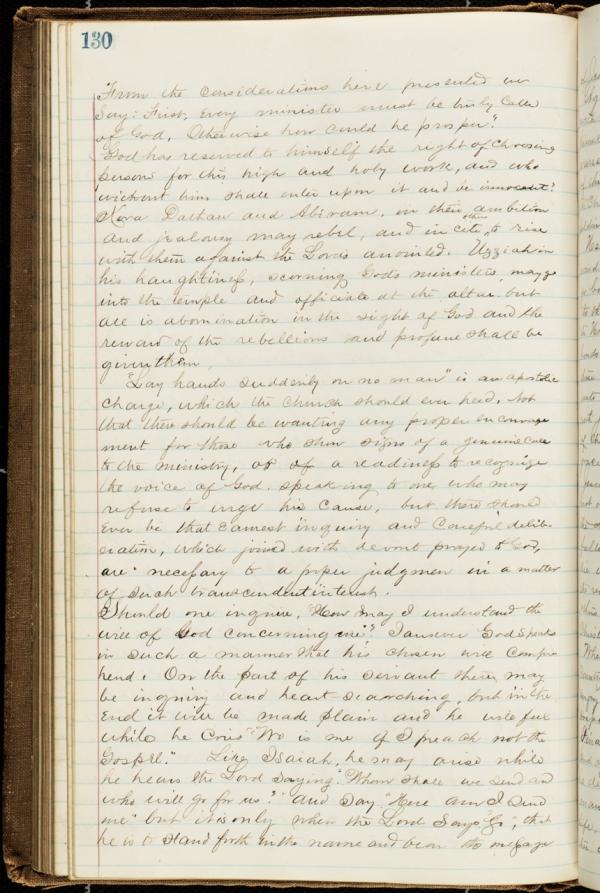 130
From the considerations here presented we
Say: First, Every minister must be truly called
of God, Otherwise how could he prosper?
God has reserved to himself the right of choosing
persons for this high and holy work, and who
without him shall enter upon it and be innocent?
Kora Dathan and Abiram, in their ambition
and jealousy may rebel, and incite others to rise
with them against the Lords anointed. Uzziah in
his haughtiness, scorning Gods ministers, may go
into the temple and officiate at the altar, but
all is abomination in the sight of God and the
reward of the rebellious and profane shall be
given them.
"Lay hands suddenly on no man" is an apostolic
charge, which the Church should ever heed. Not
that there should be wanting any proper encourage
ment for those who show signs of a genuine call
to the ministry, or of a readiness to recognize
the voice of God speaking to one who may
refuse to urge his cause, but there should
ever be that earnest inquiry and careful delib-
eration, which joined with devout prayer to God,
are necessary to a proper judgmen in a matter
of such transcendent interest.
Should one inquire, "How may I understand the
will of God concerning me"? I answer God speaks
in such a manner that his chosen will compre
hend. On the part of his servant there may
be inquiry and heart searching, but in the
end it will be made plain and he will feel
while he cries "Wo is me if I preach not the
Gospel." Like Isaiah, he may arise while
he hears the Lord saying "Whom shall we send and
who will go for us?" and say "Here am I send
me" but it is only when the Lord says "Go", that
he is to stand forth in the name and bear the message